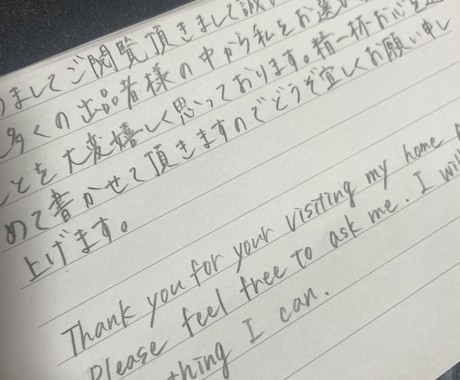 ましてご閲覧頂きまして誠に
多くの出品者様の中から私をお選び
ことを大変嬉しく思っております。精一杯心を込
めて書かせて頂きますのでどうぞ宜しくお願い申し
上げます。
Thank you for your visiting my home
Please feel free to ask me. I will
thing I can.